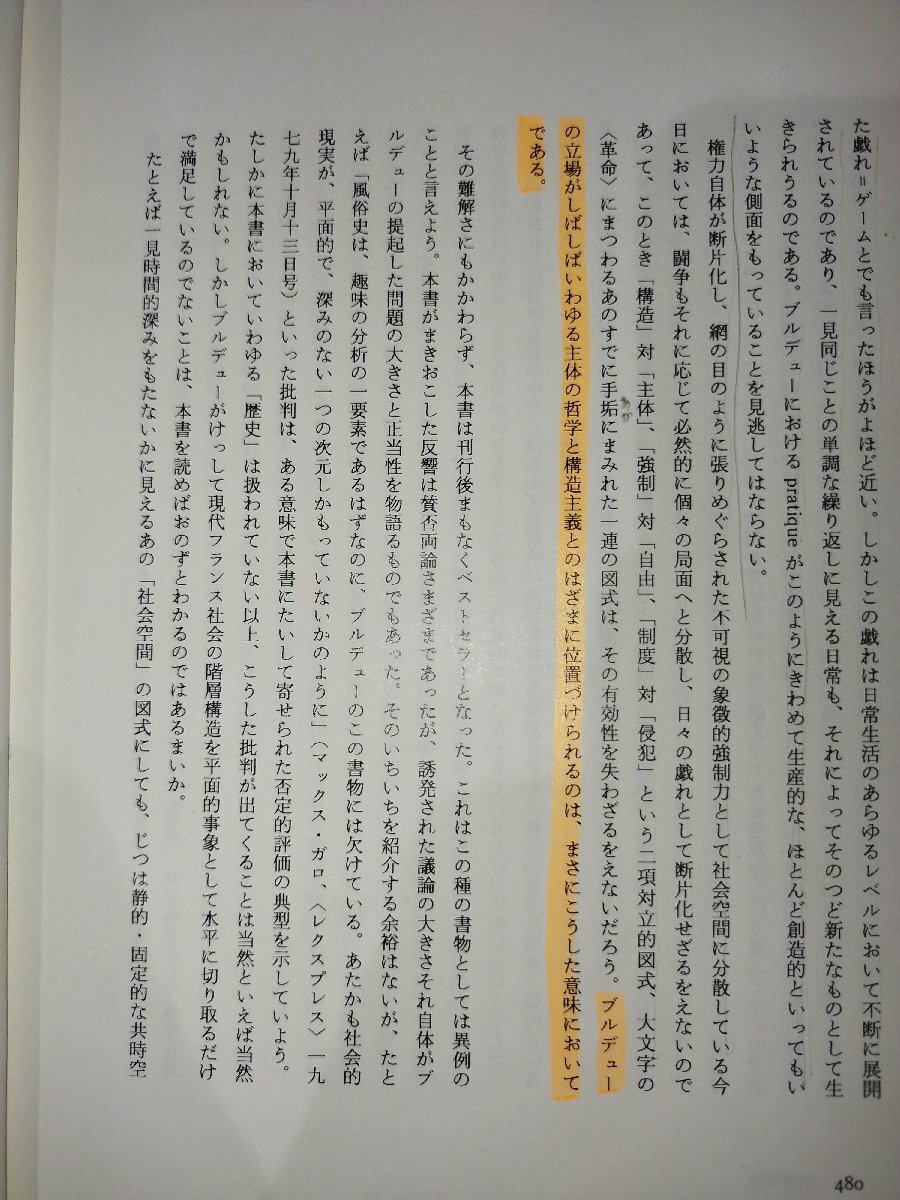 た戯れ＝ゲームとでも言ったほうがよほど近い。しかしこの戯れは日常生活のあらゆるレベルにおいて不断に展開
されているのであり、一見同じことの単調な繰り返しに見える日常も、それによってそのつど新たなものとして生
きられうるのである。ブルデューにおける pratique がこのようにきわめて生産的な、ほとんど創造的といってもい
いような側面をもっていることを見逃してはならない。
権力自体が断片化し、網の目のように張りめぐらされた不可視の象徴的強制力として社会空間に分散している今
日においては、闘争もそれに応じて必然的に個々の局面へと分散し、日々の戯れとして断片化せざるをえないので
あって、このとき「構造」対「主体」、「強制」対「自由」、「制度」対「侵犯」という二項対立的図式、大文字の
〈革命〉にまつわるあのすでに手垢にまみれた一連の図式は、その有効性を失わざるをえないだろう。ブルデュー
の立場がしばしばいわゆる主体の哲学と構造主義とのはざまに位置づけられるのは、まさにこうした意味において
である。
その難解さにもかかわらず、本書は刊行後まもなくベストセラーとなった。これはこの種の書物としては異例の
ことと言えよう。本書がまきおこした反響は賛否両論さまざまであったが、誘発された議論の大きさそれ自体がブ
ルデューの提起した問題の大きさと正当性を物語るものでもあった。そのいちいちを紹介する余裕はないが、たと
えば「風俗史は、趣味の分析の一要素であるはずなのに、ブルデューのこの書物には欠けている。あたかも社会的
現実が、平面的で、深みのない一つの次元しかもっていないかのように」（マックス・ガロ、〈レクスプレス〉一九
七九年十月十三日号）といった批判は、ある意味で本書にたいして寄せられた否定的評価の典型を示していよう。
たしかに本書においていわゆる「歴史」は扱われていない以上、こうした批判が出てくることは当然といえば当然
かもしれない。しかしブルデューがけっして現代フランス社会の階層構造を平面的事象として水平に切り取るだけ
で満足しているのでないことは、本書を読めばおのずとわかるのではあるまいか。
たとえば一見時間的深みをもたないかに見えるあの「社会空間」の図式にしても、じつは静的・固定的な共時空
480